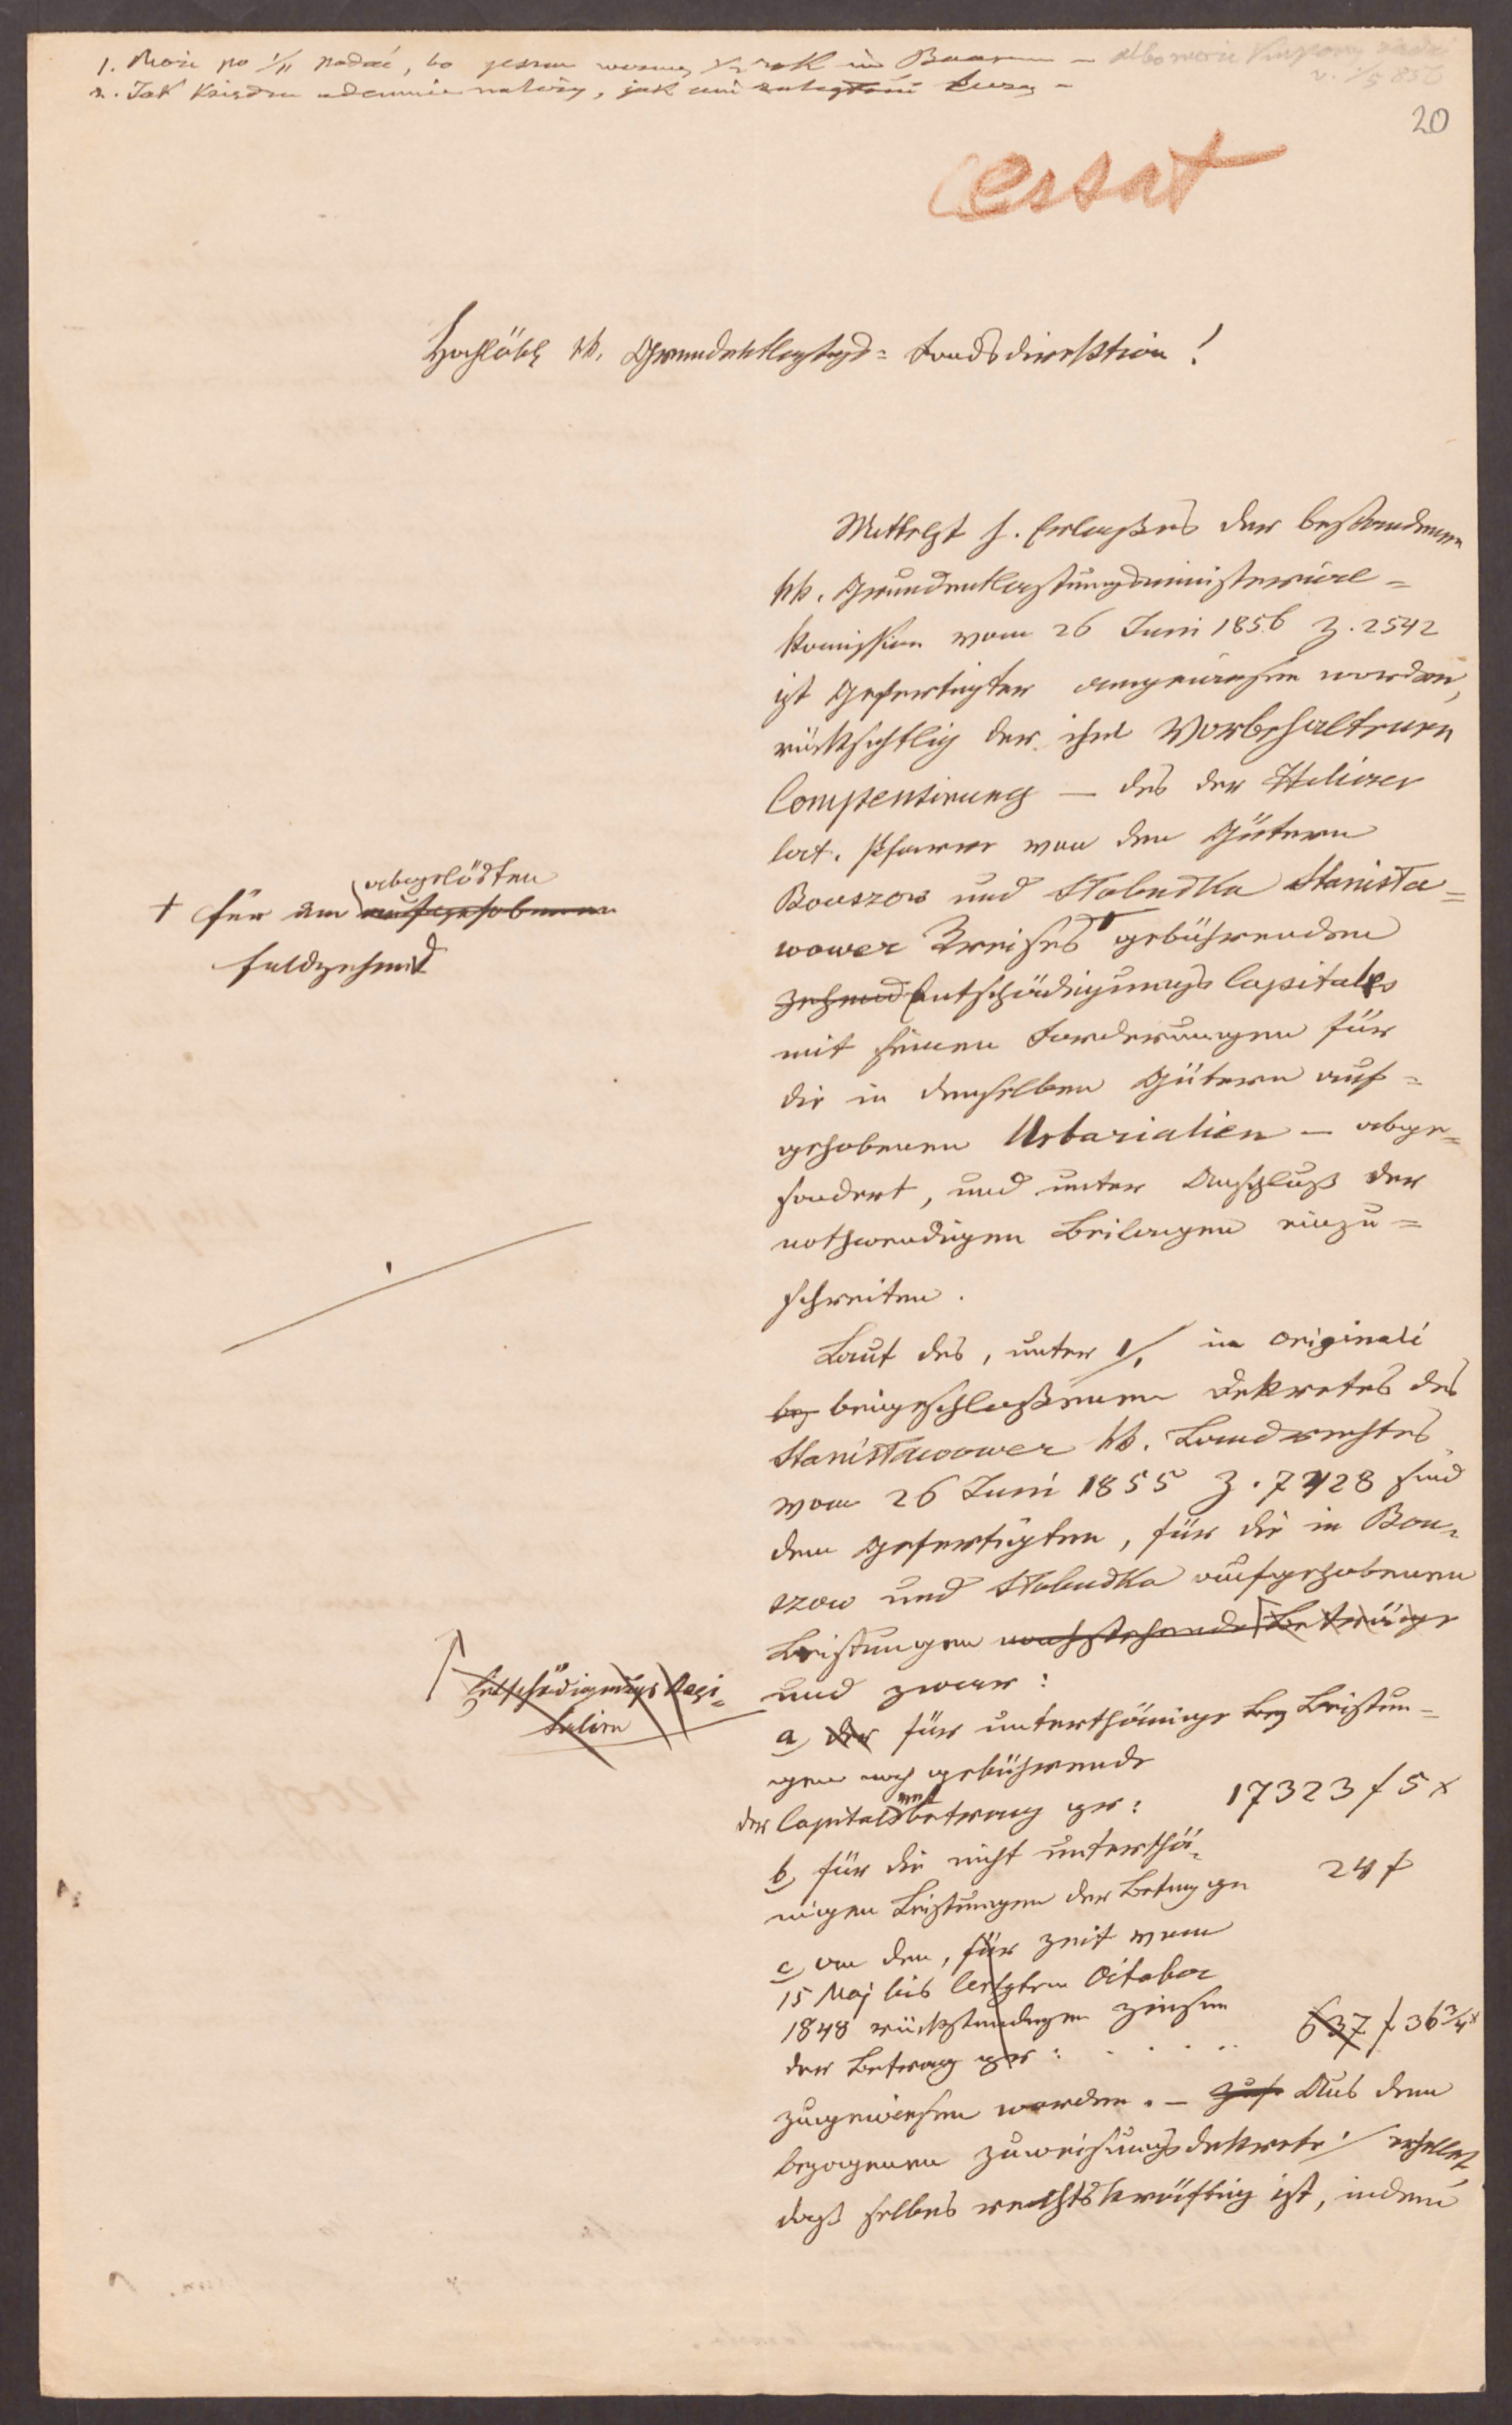 1. Może po 1/11 podać, bo jeszcze 1/2 rok in Baarem — albo może kupony
v. 1/5 856
2. Jak księdzu odemnie należy, jak ani kurs —
20
Cessat
Hochlöbl kk. Grundentlastgs= Fondsdirektion!
Mittelst h. Erlaßes der bestandenen
kk. Grundentlastungsministerial=
komission vom 26 Juni 1856 Z. 2542
ist Gefertigter angewiesen worden,
rücksichtlich der ihm vorbehaltenen
Compensirung — des der Haliczer
lat. Pfarre von den Gütern
Bouszow und Słobudka Stanisła=
wower Kreises gebührenden
+ für den aufgehobenen abgelösten
Feldzehend
Zehend Entschädigungs Capitales
mit seinen Forderungen für
die in denselben Gütern auf=
gehobenen Urbarialien — abge=
sondert, und unter Anschluß der
nothwendigen Beilagen einzu=
schreiten.
Laut des, unter 1/. in originali
bey beigeschlossenen Dekretes des
Stanisławower kk. Landrechtes
vom 26 Juni 1855 Z. 7428 sind
dem Gefertigten, für die in Bou=
szow und Słobudka aufgehobenen
Leistungen nachstehende Beträge
Entschädigungs Kapi=
talien
und zwar:
a, der für unterthänige Leistun=
gen noch gebührende
der Capitalsbetrag per: 17323 f 5 x
b, für die nicht unterthä=
nigen Leistungen der Betrag per 24 f
c, an den, für Zeit vom
15 Maj bis letzten October
1848 rückständigen Zinsen
der Betrag per: . . . . . 637 f 36 3/4 x
zugewiesen worden. — Aus dem
bezogenen Zuweisungsdekrete / erhellet,
daß selbes rechtskräftig ist, indem